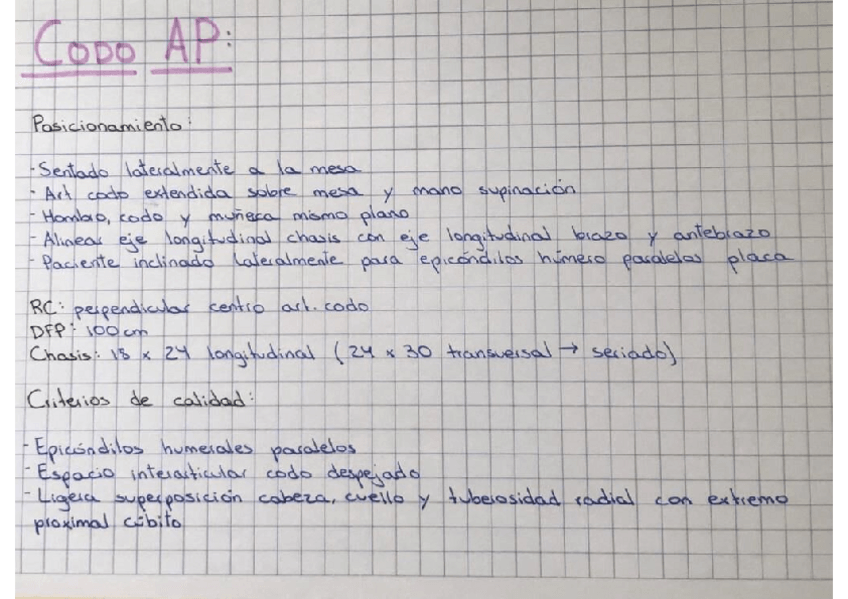 CODO AP:
Posicionamiento:
- Sentado lateralmente a la mesa
- Art codo extendida sobre mesa y mano supinación
- Hombro, codo y muñeca mismo plano
- Alinear eje longitudinal chasis con eje longitudinal brazo y antebrazo
- Paciente inclinado lateralmente para epicóndilos húmero paralelos placa
RC: perpendicular centro art. codo
DFP: 100cm
Chasis: 18 x 24 longitudinal (24 x 30 transversal → seriado)
Criterios de calidad:
- Epicóndilos humerales paralelos
- Espacio interarticular codo despejado
- Ligera superposición cabeza, cuello y tuberosidad radial con extremo
proximal cúbito